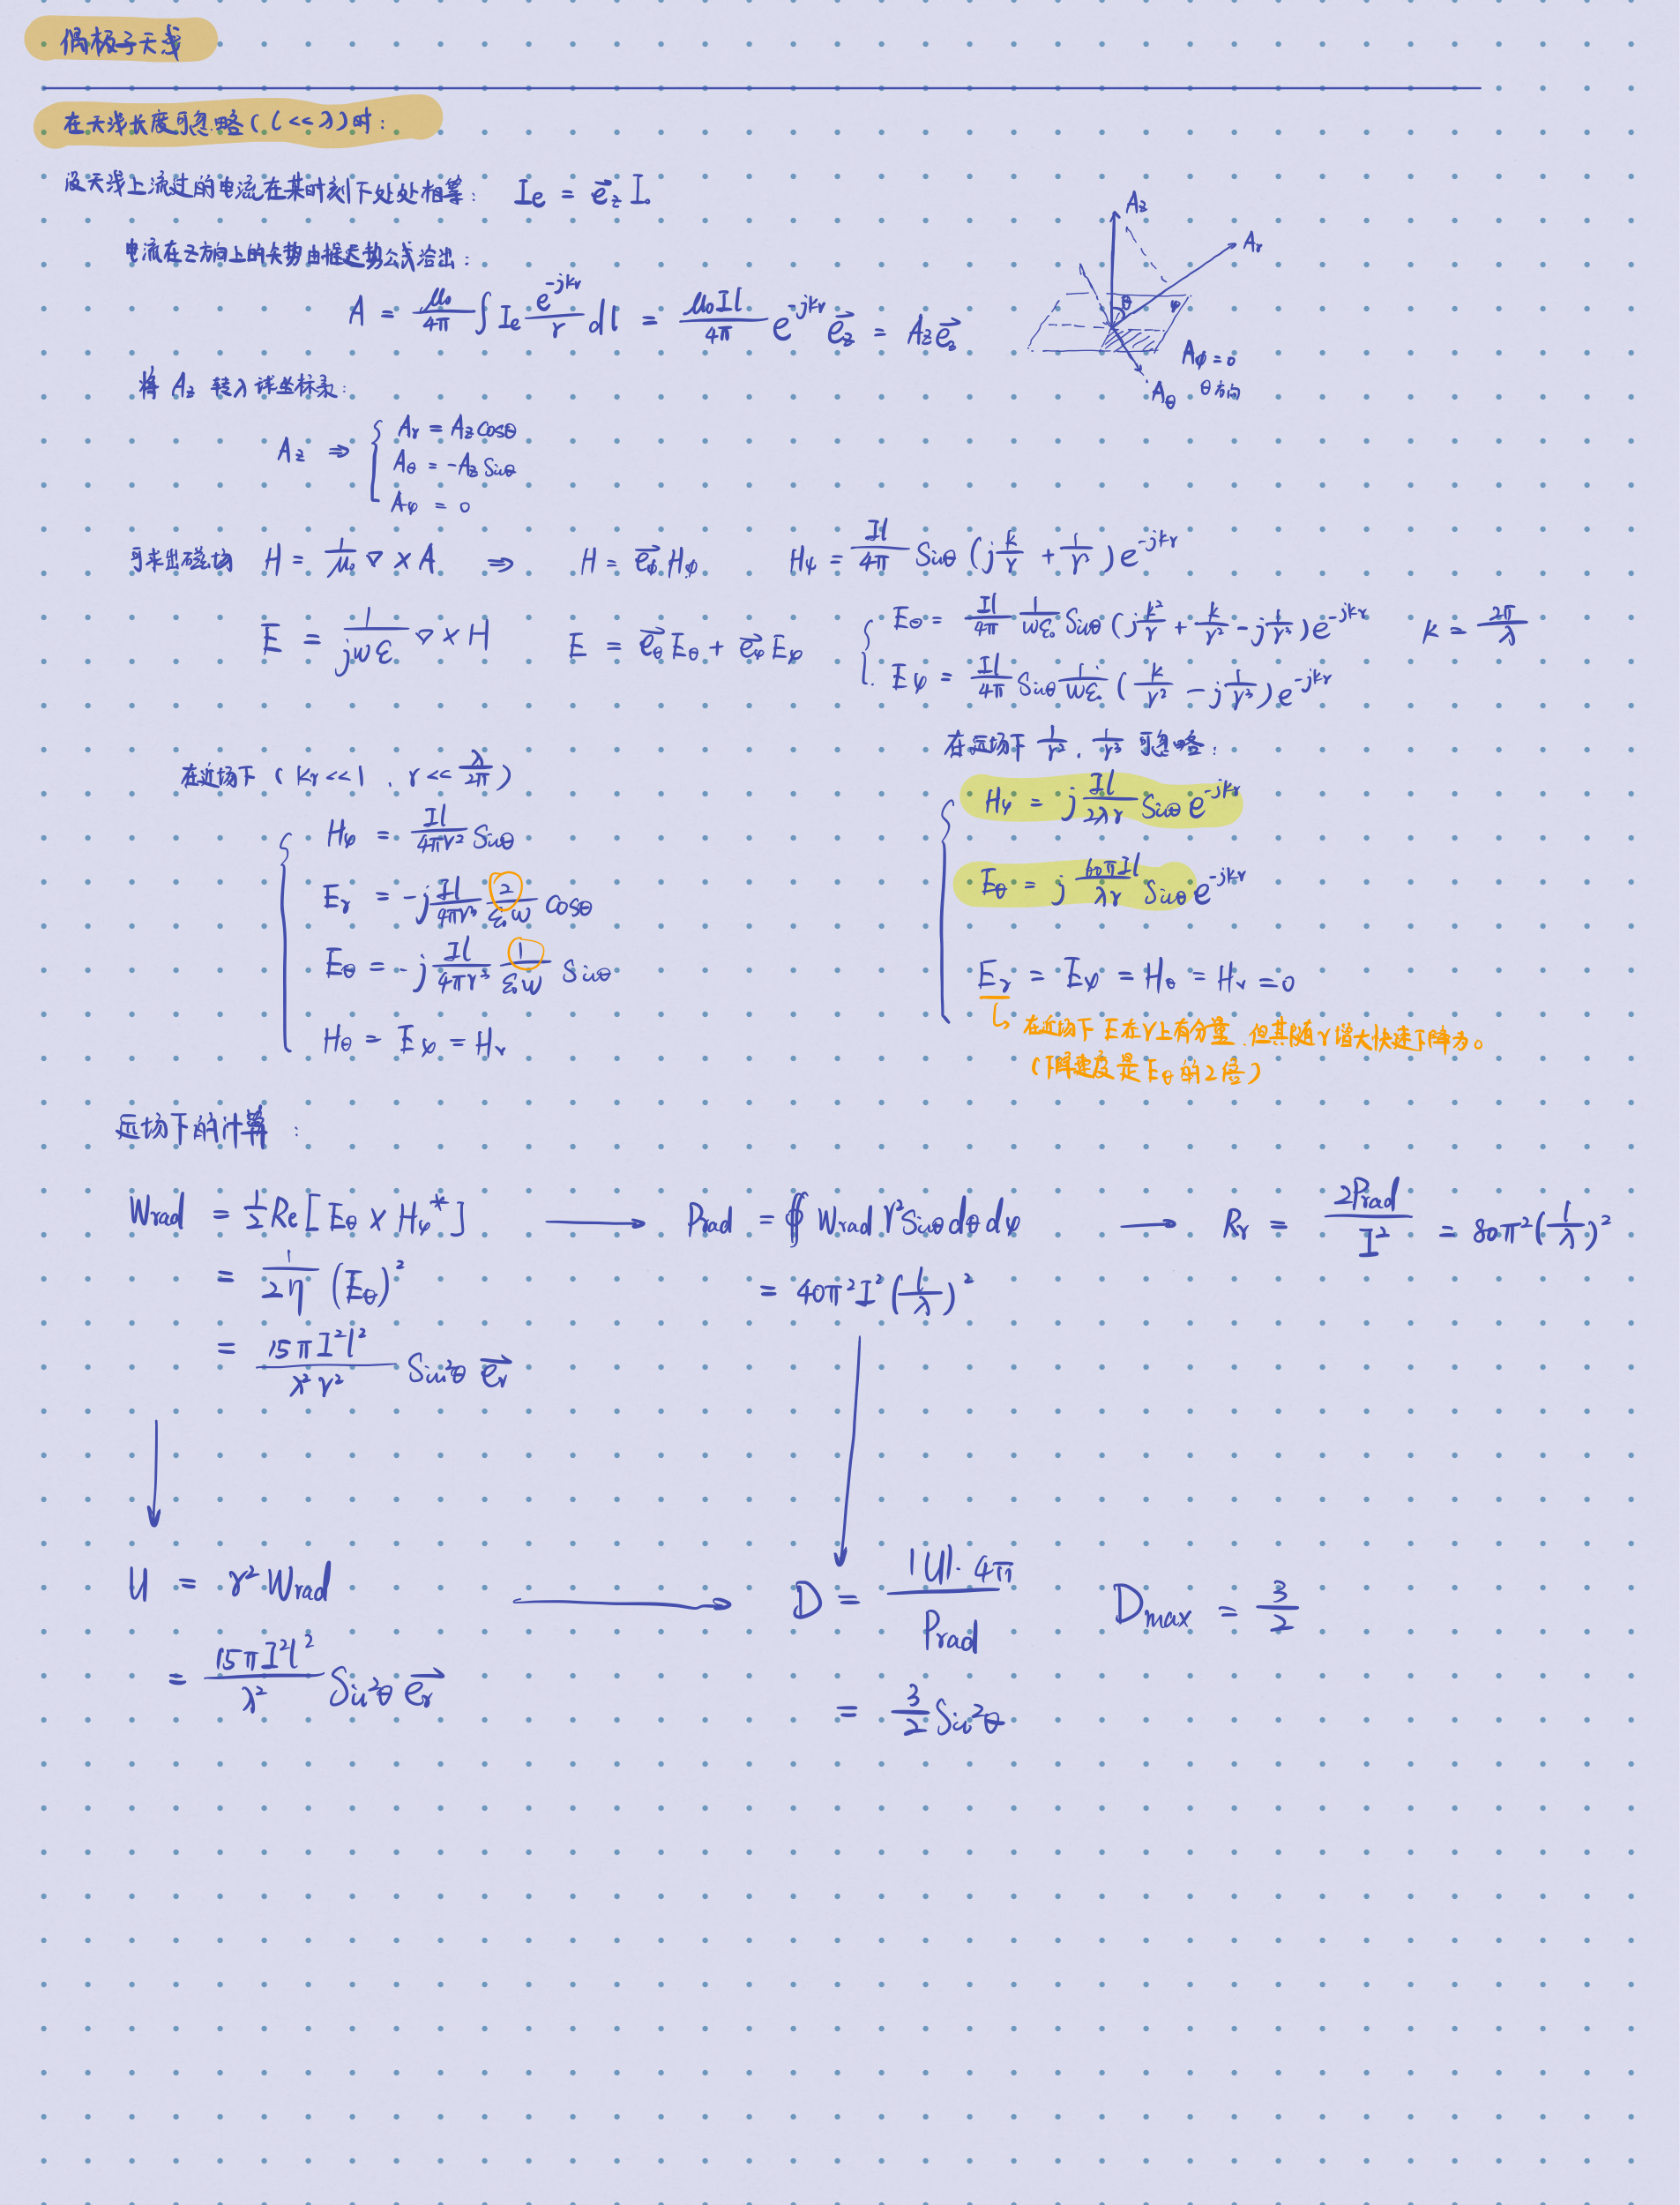 偶极子天线
在天线长度可忽略(l<<λ)时:
设天线上流过的电流在某时刻下处处相等: Ie = e⃗z I。
电流在Z方向上的矢势由推迟势公式给出:
A = μ₀/4π ∫ Ie e^-jkr/r dl = μ₀Il/4π e^-jkr e⃗z = Az e⃗z
Az
Ar
θ
φ
Aϕ=0
Aθ θ方向
将 Az 转入球坐标系:
Az ⇒ { Ar = Az cosθ
Aθ = -Az Sinθ
Aφ = 0
可求出磁场 H = 1/μ₀ ∇ × A ⇒ H = e⃗ϕ Hϕ Hφ = Il/4π Sinθ (j k/r + 1/r²) e^-jkr
E = 1/jωε ∇ × H E = e⃗θ Eθ + e⃗φ Eφ { Eθ = Il/4π 1/ωε₀ Sinθ (j k²/r + k/r² - j 1/r³) e^-jkr k = 2π/λ
Eφ = Il/4π Sinθ 1/ωε₀ (k/r² - j 1/r³) e^-jkr
在近场下 (kr<<1 , r<<λ/2π)
Hφ = Il/4πr² Sinθ
Er = -j Il/4πr³ 2/ε₀ω cosθ
Eθ = -j Il/4πr³ 1/ε₀ω Sinθ
Hθ = Eφ = Hr
在远场下 1/r², 1/r³ 可忽略:
Hφ = j Il/2λr Sinθ e^-jkr
Eθ = j 60πIl/λr Sinθ e^-jkr
Er = Eφ = Hθ = Hr = 0
↳ 在近场下 E在r上有分量,但其随r增大快速下降为。
(下降速度是Eθ的2倍)
远场下的计算 :
Wrad = 1/2 Re[Eθ × Hφ*] → Prad = ∯ Wrad r² Sinθ dθ dφ → Rr = 2Prad/I² = 80π²(l/λ)²
= 1/2η (Eθ)² = 40π²I²(l/λ)²
= 15πI²l²/λ²r² Sin²θ e⃗r
U = r² Wrad → D = |U|·4π/Prad Dmax = 3/2
= 15πI²l²/λ² Sin²θ e⃗r = 3/2 Sin²θ